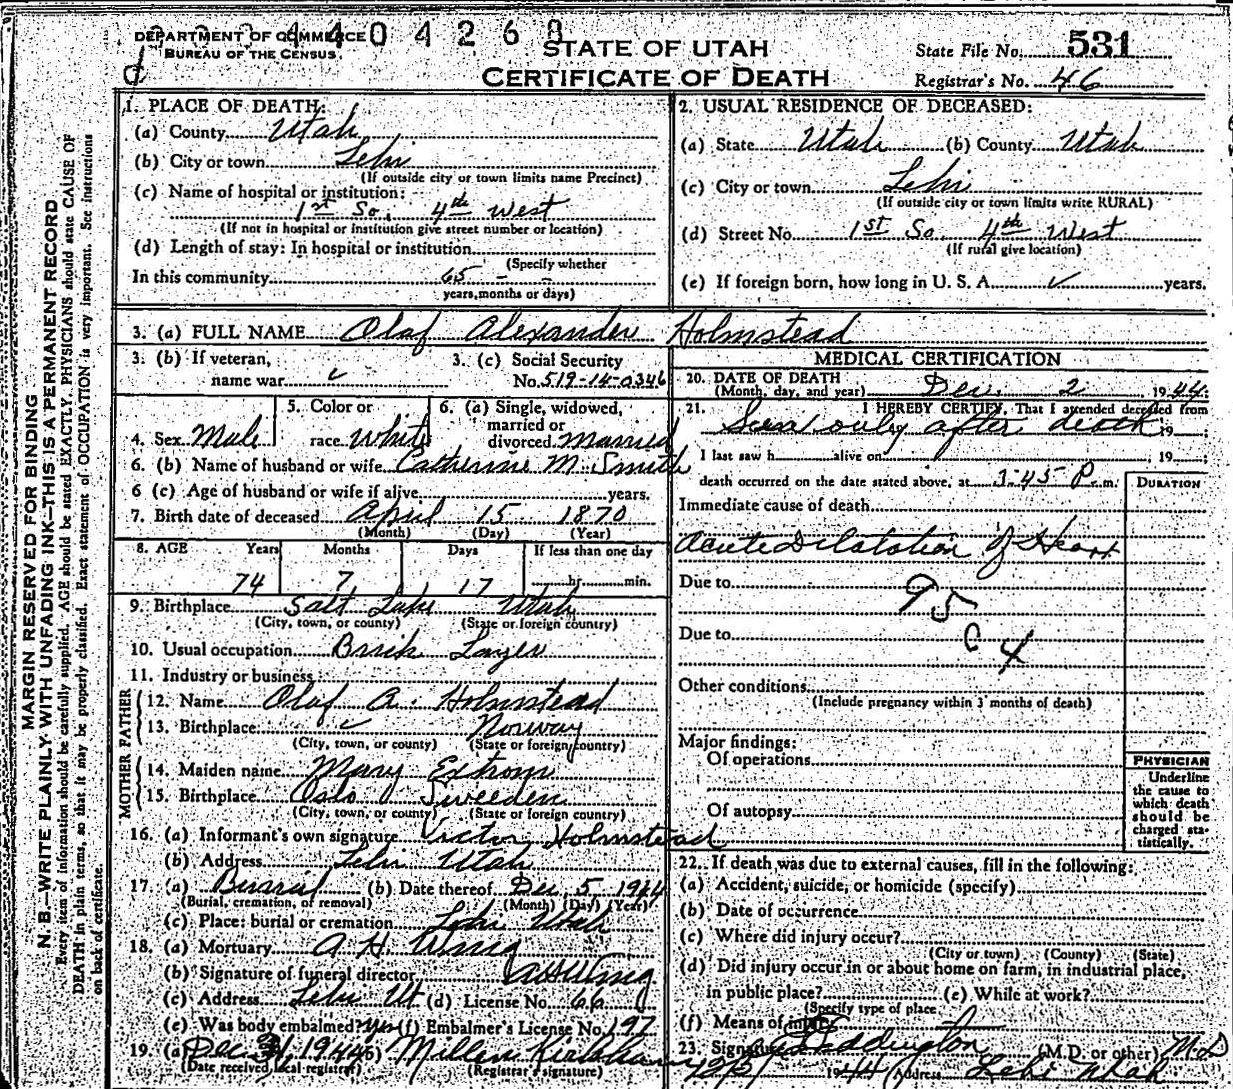 DEPARTMENT OF COMMERCE
BUREAU OF THE CENSUS
4404268
STATE OF UTAH
CERTIFICATE OF DEATH
State File No. 531
Registrar's No. 46
MARGIN RESERVED FOR BINDING
N. B.—WRITE PLAINLY, WITH UNFADING INK—THIS IS A PERMANENT RECORD
Every item of information should be carefully supplied. AGE should be stated EXACTLY. PHYSICIANS should state CAUSE OF
DEATH in plain terms, so that it may be properly classified. Exact statement of OCCUPATION is very important. See instructions
on back of certificate.
1. PLACE OF DEATH:
(a) County Utah
(b) City or town Lehi
(If outside city or town limits name Precinct)
(c) Name of hospital or institution:
1st So. 4th West
(If not in hospital or institution give street number or location)
(d) Length of stay: In hospital or institution
(Specify whether
In this community 65 - -
years, months or days)
2. USUAL RESIDENCE OF DECEASED:
(a) State Utah (b) County Utah
(c) City or town Lehi
(If outside city or town limits write RURAL)
(d) Street No. 1st So 4th West
(If rural give location)
(e) If foreign born, how long in U. S. A. ✓ years.
3. (a) FULL NAME Olaf Alexander Holmstead
3. (b) If veteran,
name war ✓
3. (c) Social Security
No. 519-14-0346
4. Sex Male
5. Color or
race White
6. (a) Single, widowed,
married or
divorced Married
6. (b) Name of husband or wife Catherine M. Smith
6 (c) Age of husband or wife if alive years.
7. Birth date of deceased April 15 1870
(Month) (Day) (Year)
8. AGE Years Months Days If less than one day
74 7 17 hr. min.
9. Birthplace Salt Lake Utah
(City, town, or county) (State or foreign country)
10. Usual occupation Brick Layer
11. Industry or business
FATHER
12. Name Olaf A. Holmstead
13. Birthplace ✓ Norway
(City, town, or county) (State or foreign country)
MOTHER
14. Maiden name Mary Extrom
15. Birthplace Oslo Sweeden
(City, town, or county) (State or foreign country)
16. (a) Informant's own signature Victor Holmstead
(b) Address Lehi Utah
17. (a) Burial (b) Date thereof Dec. 5 1944
(Burial, cremation, or removal) (Month) (Day) (Year)
(c) Place: burial or cremation Lehi Utah
18. (a) Mortuary A. H. Wing
(b) Signature of funeral director AH Wing
(c) Address Lehi Ut (d) License No. 66
(e) Was body embalmed? Yes (f) Embalmer's License No. 197
19. (a) Dec 31, 1944 (b) Millen Kirkham
(Date received local registrar) (Registrar's signature)
MEDICAL CERTIFICATION
20. DATE OF DEATH
(Month, day, and year) Dec. 2 1944
21. I HEREBY CERTIFY, That I attended deceased from
Seen only after death 19
I last saw h alive on 19
death occurred on the date stated above, at 3:45 P. m.
DURATION
Immediate cause of death
Acute Dilatation of Heart
Due to
95 c 4
Due to
Other conditions
(Include pregnancy within 3 months of death)
Major findings:
Of operations
Of autopsy
PHYSICIAN
Underline
the cause to
which death
should be
charged sta-
tistically.
22. If death was due to external causes, fill in the following:
(a) Accident, suicide, or homicide (specify)
(b) Date of occurrence
(c) Where did injury occur?
(City or town) (County) (State)
(d) Did injury occur in or about home on farm, in industrial place,
in public place? (e) While at work?
(Specify type of place
(f) Means of injury
23. Signature Eddington (M.D. or other) M D
1944 Address Lehi Utah